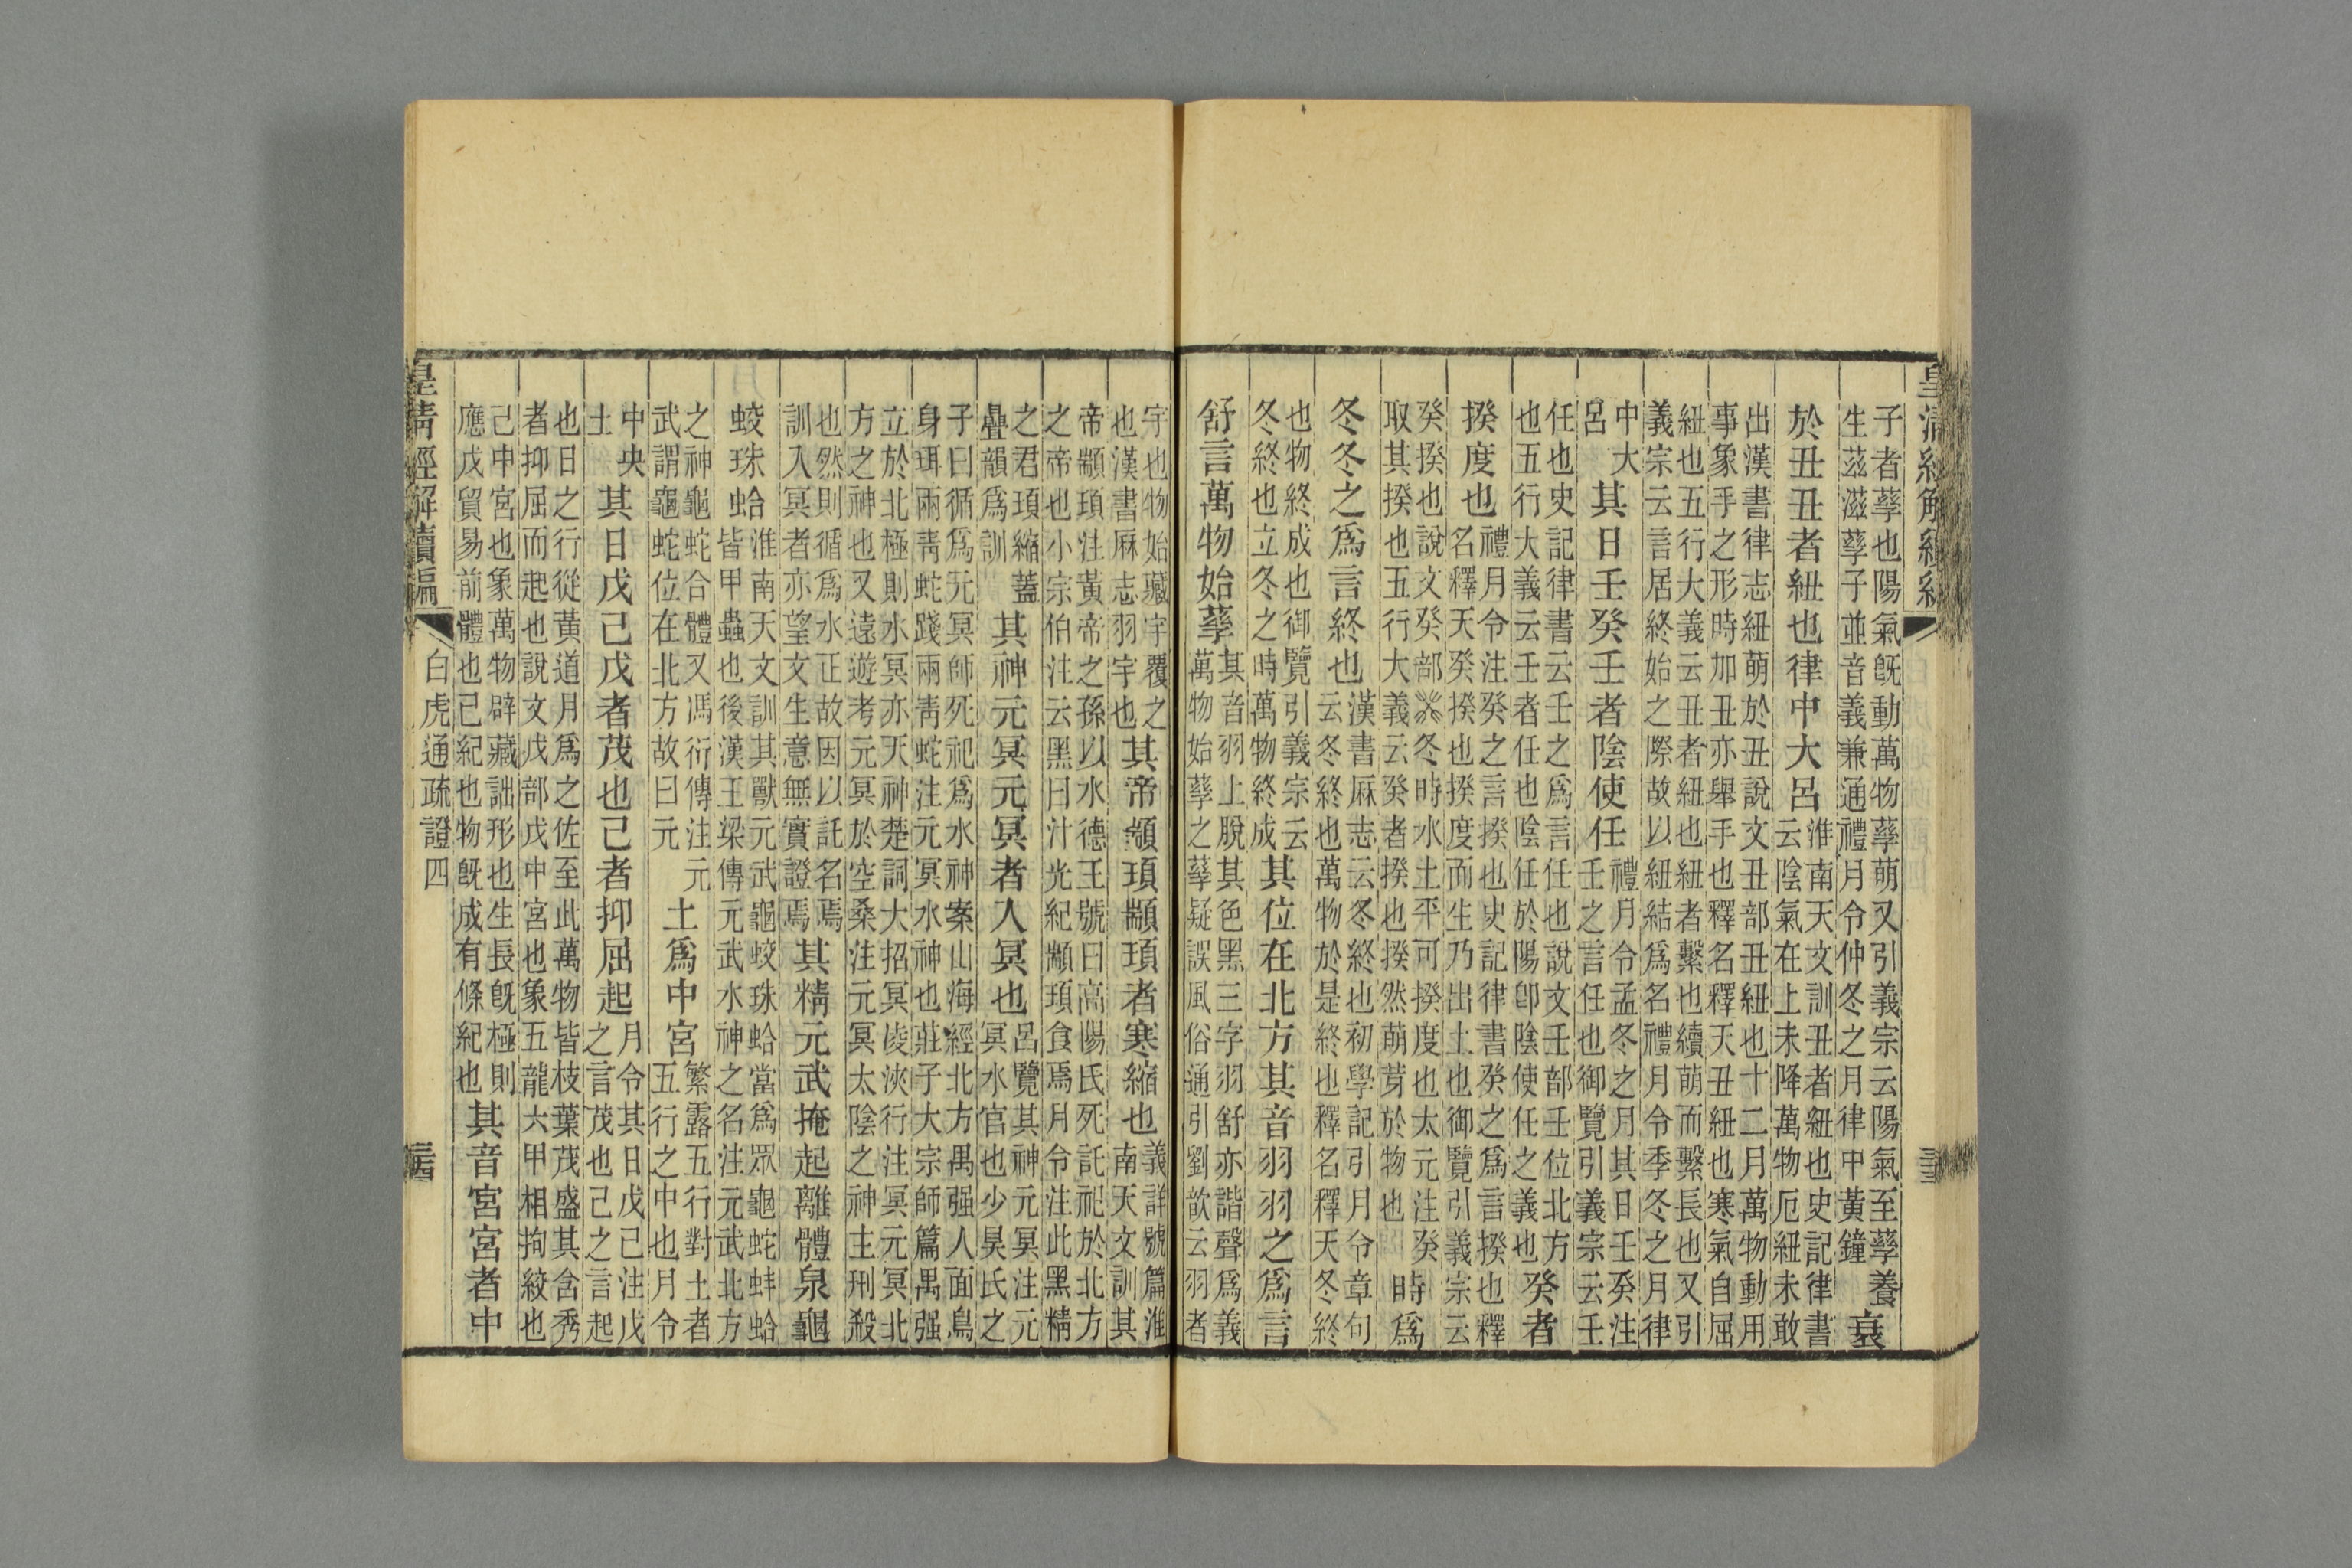 皇清經解續編
子者孳也陽氣旣動萬物孳萌又引義宗云陽氣至孳養
生茲滋孳子並音義兼通禮月令仲冬之月律中黃鐘
衰
於丑丑者紐也律中大呂
淮南天文訓丑者紐也史記律書
云陰氣在上未降萬物厄紐未敢
出漢書律志紐萌於丑說文丑部丑紐也十二月萬物動用
事象手之形時加丑亦舉手也釋名釋天丑紐也寒氣自屈
紐也五行大義云丑者紐也紐者繫也續萌而繫長也又引
義宗云言居終始之際故以紐結爲名禮月令季冬之月律
中大
呂
其日壬癸壬者陰使任
禮月令孟冬之月其日壬癸注
壬之言任也御覽引義宗云壬
任也史記律書云壬之爲言任也說文壬部壬位北方
也五行大義云壬者任也陰任於陽卽陰使任之義也
癸者
揆度也
禮月令注癸之言揆也史記律書癸之爲言揆也釋
名釋天癸揆也揆度而生乃出土也御覽引義宗云
癸揆也說文癸部冬時水土平可揆度也太元注癸
取其揆也五行大義云癸者揆也揆然萌芽於物也
時爲
冬冬之爲言終也
漢書厤志云冬終也初學記引月令章句
云冬終也萬物於是終也釋名釋天冬終
也物終成也御覽引義宗云
冬終也立冬之時萬物終成
其位在北方其音羽羽之爲言
舒言萬物始孳
其音羽上脫其色黑三字羽舒亦諧聲爲義
萬物始孳之孳疑誤風俗通引劉歆云羽者
宇也物始藏宇覆之
也漢書厤志羽宇也
其帝顓頊顓頊者寒縮也
義詳號篇淮
南天文訓其
帝顓頊注黃帝之孫以水德王號曰高陽氏死託祀於北方
之帝也小宗伯注云黑曰汁光紀顓頊食焉月令注此黑精
之君頊縮蓋
疊韻爲訓
其神元冥元冥者入冥也
呂覽其神元冥注元
冥水官也少昊氏之
子曰循爲元冥師死祀爲水神案山海經北方禺强人面鳥
身珥兩靑蛇踐兩靑蛇注元冥水神也莊子大宗師篇禺强
立於北極則水冥亦天神楚詞大招冥凌浹行注冥元冥北
方之神也又遠遊考元冥於空桑注元冥太陰之神主刑殺
也然則循爲水正故因以託名焉
訓入冥者亦望文生意無實證焉
其精元武掩起離體泉龜
蛟珠蛤
淮南天文訓其獸元武龜蛟珠蛤當爲眾龜蛇蚌蛤
皆甲蟲也後漢王梁傳元武水神之名注元武北方
之神龜蛇合體又馮衍傳注元
武謂龜蛇位在北方故曰元
土爲中宮
繁露五行對土者
五行之中也月令
中央
土
其日戊己戊者茂也己者抑屈起
月令其日戊己注戊
之言茂也己之言起
也日之行從黃道月爲之佐至此萬物皆枝葉茂盛其含秀
者抑屈而起也說文戊部戊中宮也象五龍六甲相拘絞也
己中宮也象萬物辟藏詘形也生長旣極則
應戊貿易前體也己紀也物旣成有條紀也
其音宮宮者中
皇清經解續編
白虎通疏證四